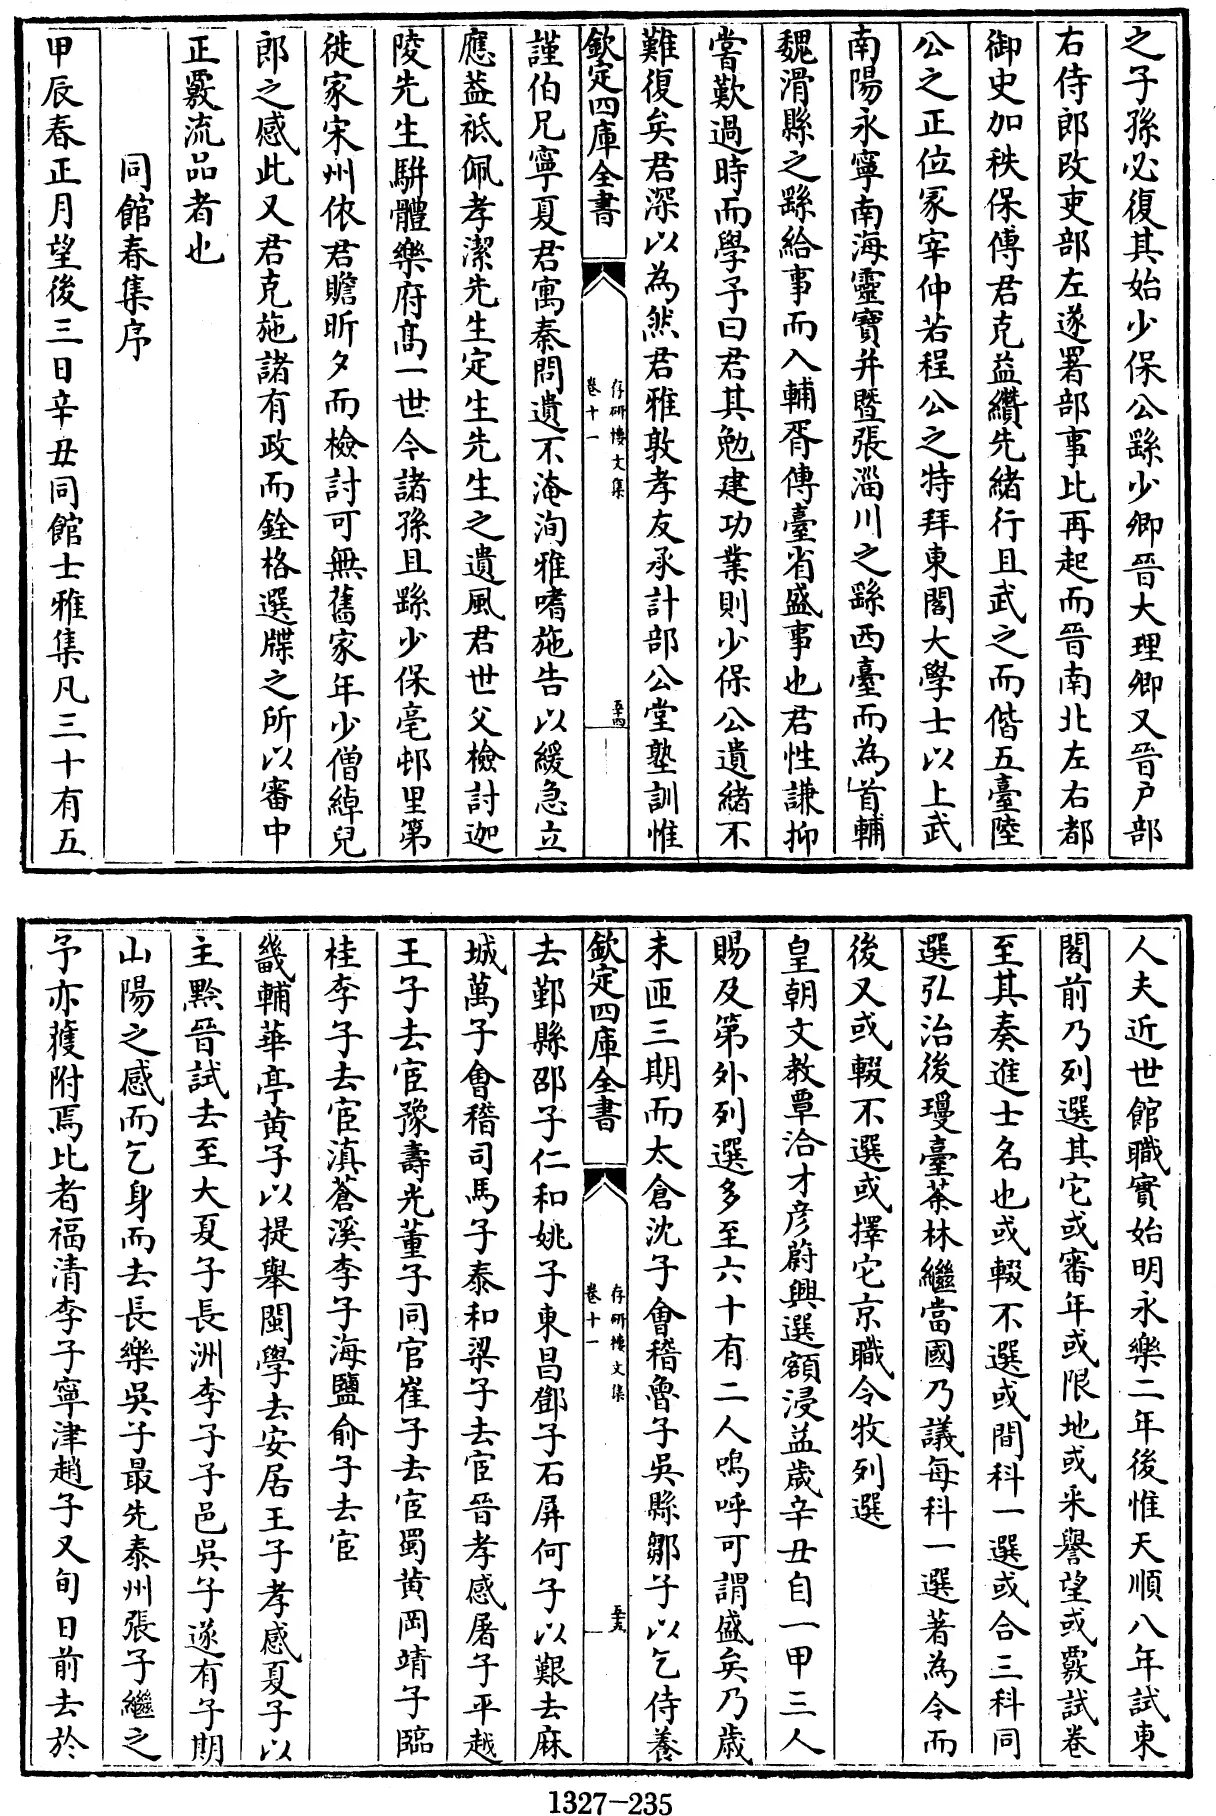 之子孫必復其始少保公繇少卿晉大理卿又晉户部
右侍郎改吏部左遂署部事比再起而晉南北左右都
御史加秩保傅君克益纘先緒行且武之而偕五臺陸
公之正位冢宰仲若程公之特拜東閣大學士以上武
南陽永寧南海靈寶并暨張淄川之繇西臺而為首輔
魏滑縣之繇給事而入輔胥傳臺省盛事也君性謙抑
嘗歎過時而學予曰君其勉建功業則少保公遺緒不
難復矣君深以為然君雅敦孝友承計部公堂塾訓惟
欽定四庫全書
存研樓文集
卷十一
五十四
謹伯兄寧夏君寓秦問遺不淹洵雅嗜施告以緩急立
應葢祗佩孝潔先生定生先生之遺風君世父檢討迦
陵先生駢體樂府髙一世今諸孫且繇少保亳邨里第
徙家宋州依君贍昕夕而檢討可無舊家年少僧綽兒
郎之感此又君克施諸有政而銓格選牒之所以審中
正覈流品者也
同館春集序
甲辰春正月望後三日辛丑同館士雅集凡三十有五
人夫近世館職實始明永樂二年後惟天順八年試東
閣前乃列選其它或審年或限地或采譽望或覈試卷
至其奏進士名也或輟不選或間科一選或合三科同
選弘治後璦臺茶林繼當國乃議每科一選著為令而
後又或輟不選或擇它京職令牧列選
皇朝文教覃洽才彦蔚興選額浸益歲辛丑自一甲三人
賜及第外列選多至六十有二人嗚呼可謂盛矣乃歲
未匝三期而太倉沈子㑹稽魯子吳縣鄒子以乞侍養
欽定四庫全書
存研樓文集
卷十一
五十五
去鄞縣邵子仁和姚子東昌鄧子石屏何子以艱去麻
城萬子㑹稽司馬子泰和梁子去宦晉孝感屠子平越
王子去宦豫壽光董子同官崔子去宦蜀黄岡靖子臨
桂李子去宦滇蒼溪李子海鹽俞子去宦
畿輔華亭黄子以提舉閩學去安居王子孝感夏子以
主黔晉試去至大夏子長洲李子子邑吳子遂有子期
山陽之感而乞身而去長樂吳子最先泰州張子繼之
予亦獲附焉比者福清李子寧津趙子又旬日前去於
1327-235